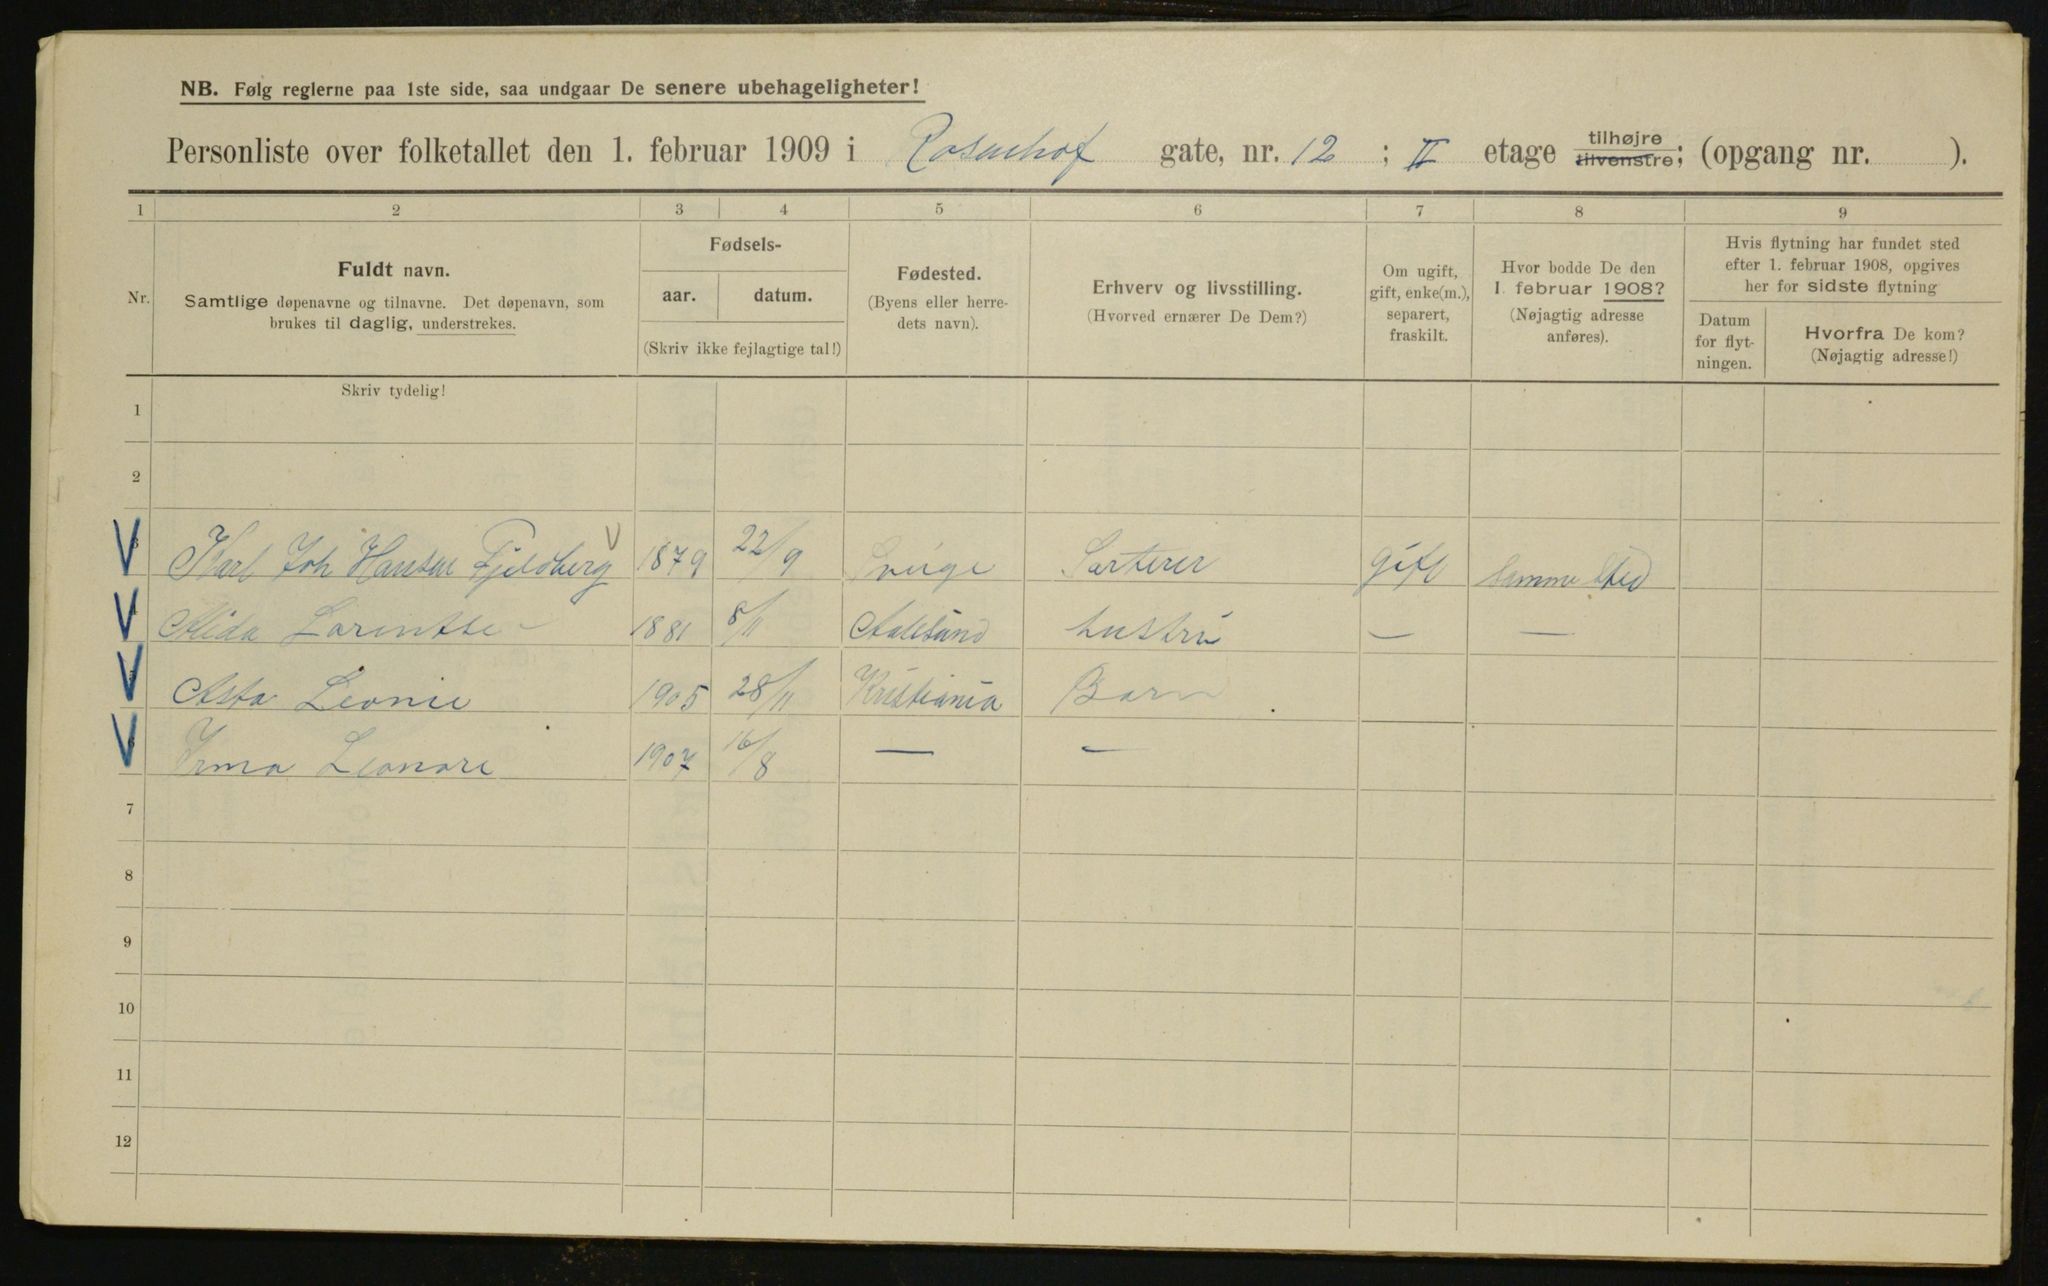 NB. Følg reglerne paa 1ste side, saa undgaar De senere ubehageligheter!
Personliste over folketallet den 1. februar 1909 i Rosenhof gate, nr. 12 ; II etage tilhøjre tilvenstre; (opgang nr. ).
1 2 3 4 5 6 7 8 9
Nr.
Fuldt navn.
Samtlige døpenavne og tilnavne. Det døpenavn, som
brukes til daglig, understrekes.
Fødsels-
aar. datum.
(Skriv ikke fejlagtige tal!)
Fødested.
(Byens eller herre-
dets navn).
Erhverv og livsstilling.
(Hvorved ernærer De Dem?)
Om ugift,
gift, enke(m.),
separert,
fraskilt.
Hvor bodde De den
1. februar 1908?
(Nøjagtig adresse
anføres).
Hvis flytning har fundet sted
efter 1. februar 1908, opgives
her for sidste flytning
Datum
for flyt-
ningen.
Hvorfra De kom?
(Nøjagtig adresse!)
Skriv tydelig!
1
2
V 3 Karl Joh Hansen Fjeldberg V 1879 22/9 Sverige Sorterer gift Samme Sted
V 4 Alida Larintse – 1881 8/11 Aalesund hustru — —
V 5 Asta Leonie 1905 28/11 Kristiania Barn
V 6 Irma Leonore 1907 16/8 — —
7
8
9
10
11
12